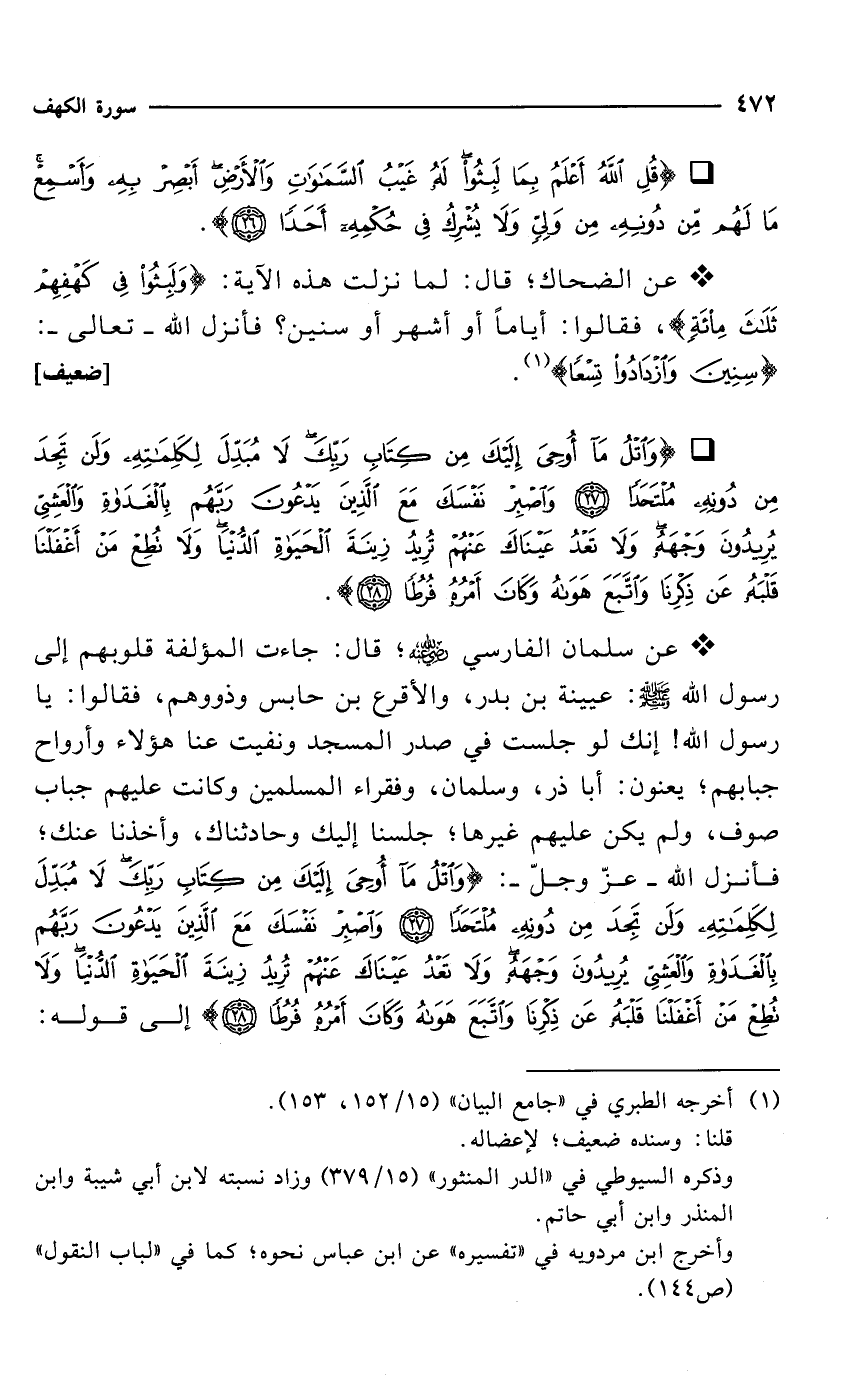 ٤٧٢ سورة الكهف
❑ ﴿قُلِ ٱللَّهُ أَعْلَمُ بِمَا لَبِثُوا۟ۖ لَهُۥ غَيْبُ ٱلسَّمَٰوَٰتِ وَٱلْأَرْضِۖ أَبْصِرْ بِهِۦ وَأَسْمِعْۚ
مَا لَهُم مِّن دُونِهِۦ مِن وَلِىٍّ وَلَا يُشْرِكُ فِى حُكْمِهِۦٓ أَحَدًا ٢٦﴾.
❖ عن الضحاك؛ قال: لما نزلت هذه الآية: ﴿وَلَبِثُوا۟ فِى كَهْفِهِمْ
ثَلَٰثَ مِا۟ئَةٍ﴾، فقالوا: أياماً أو أشهر أو سنين؟ فأنزل الله ـ تعالى ـ:
﴿سِنِينَ وَٱزْدَادُوا۟ تِسْعًا﴾(١). [ضعيف]
❑ ﴿وَٱتْلُ مَآ أُوحِىَ إِلَيْكَ مِن كِتَابِ رَبِّكَۖ لَا مُبَدِّلَ لِكَلِمَٰتِهِۦ وَلَن تَجِدَ
مِن دُونِهِۦ مُلْتَحَدًا ٢٧ وَٱصْبِرْ نَفْسَكَ مَعَ ٱلَّذِينَ يَدْعُونَ رَبَّهُم بِٱلْغَدَوٰةِ وَٱلْعَشِىِّ
يُرِيدُونَ وَجْهَهُۥۖ وَلَا تَعْدُ عَيْنَاكَ عَنْهُمْ تُرِيدُ زِينَةَ ٱلْحَيَوٰةِ ٱلدُّنْيَاۖ وَلَا تُطِعْ مَنْ أَغْفَلْنَا
قَلْبَهُۥ عَن ذِكْرِنَا وَٱتَّبَعَ هَوَىٰهُ وَكَانَ أَمْرُهُۥ فُرُطًا ٢٨﴾.
❖ عن سلمان الفارسي رضي الله عنه؛ قال: جاءت المؤلفة قلوبهم إلى
رسول الله ﷺ: عيينة بن بدر، والأقرع بن حابس وذووهم، فقالوا: يا
رسول الله! إنك لو جلست في صدر المسجد ونفيت عنا هؤلاء وأرواح
جبابهم؛ يعنون: أبا ذر، وسلمان، وفقراء المسلمين وكانت عليهم جباب
صوف، ولم يكن عليهم غيرها؛ جلسنا إليك وحادثناك، وأخذنا عنك؛
فأنزل الله ـ عزّ وجلّ ـ: ﴿وَٱتْلُ مَآ أُوحِىَ إِلَيْكَ مِن كِتَابِ رَبِّكَۖ لَا مُبَدِّلَ
لِكَلِمَٰتِهِۦ وَلَن تَجِدَ مِن دُونِهِۦ مُلْتَحَدًا ٢٧ وَٱصْبِرْ نَفْسَكَ مَعَ ٱلَّذِينَ يَدْعُونَ رَبَّهُم
بِٱلْغَدَوٰةِ وَٱلْعَشِىِّ يُرِيدُونَ وَجْهَهُۥۖ وَلَا تَعْدُ عَيْنَاكَ عَنْهُمْ تُرِيدُ زِينَةَ ٱلْحَيَوٰةِ ٱلدُّنْيَاۖ وَلَا
تُطِعْ مَنْ أَغْفَلْنَا قَلْبَهُۥ عَن ذِكْرِنَا وَٱتَّبَعَ هَوَىٰهُ وَكَانَ أَمْرُهُۥ فُرُطًا ٢٨﴾ إلى قوله:
(١) أخرجه الطبري في «جامع البيان» (١٥/ ١٥٢، ١٥٣).
قلنا: وسنده ضعيف؛ لإعضاله.
وذكره السيوطي في «الدر المنثور» (١٥/ ٣٧٩) وزاد نسبته لابن أبي شيبة وابن
المنذر وابن أبي حاتم.
وأخرج ابن مردويه في «تفسيره» عن ابن عباس نحوه؛ كما في «لباب النقول»
(ص١٤٤).